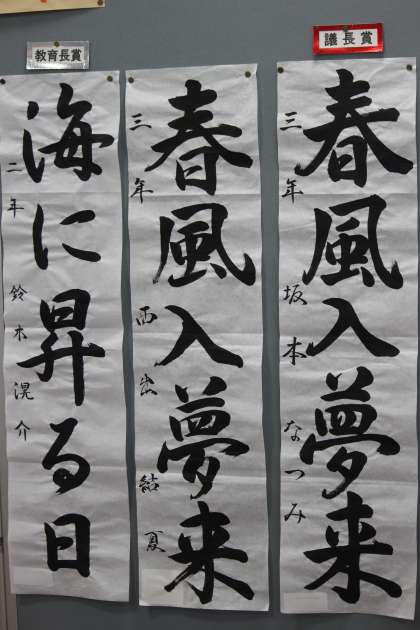 議長賞
春風入夢来
三年 坂本なつみ
春風入夢来
三年 西出結夏
教育長賞
海に昇る日
二年 鈴木滉介